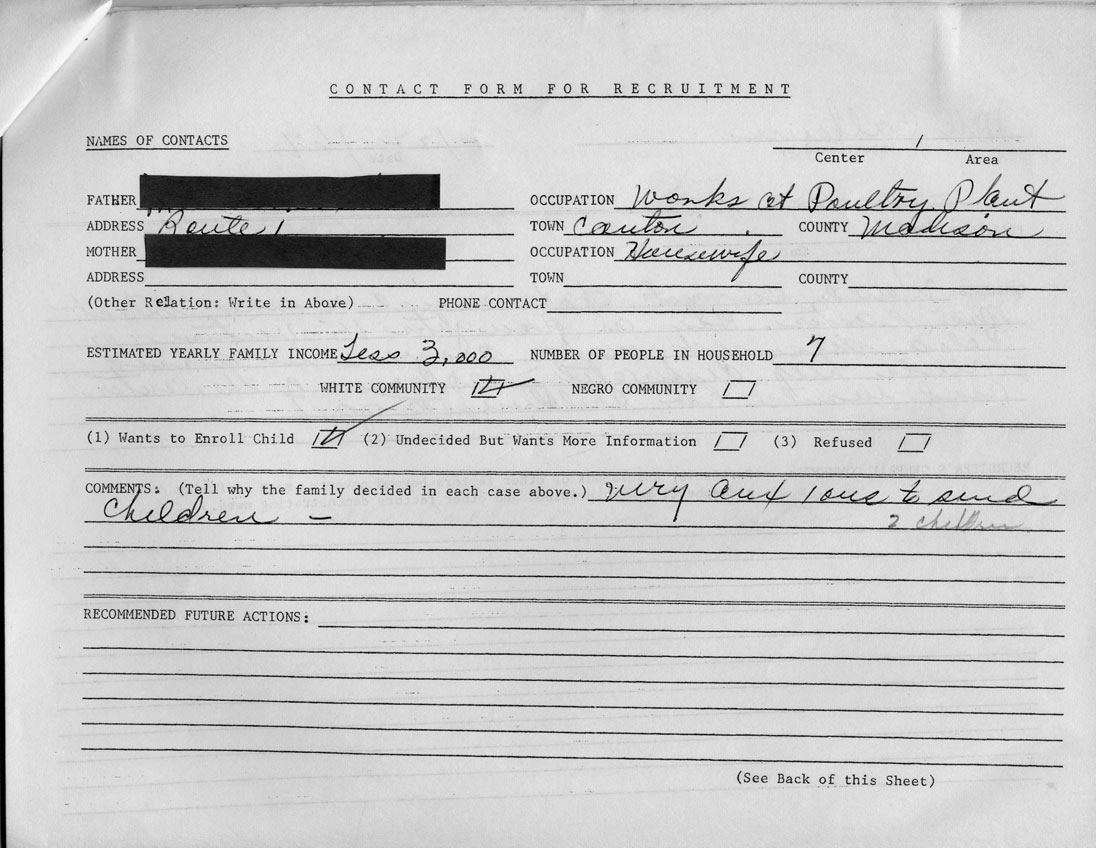 CONTACT FORM FOR RECRUITMENT
NAMES OF CONTACTS /
Center Area
FATHER OCCUPATION Works at Poultry Plant
ADDRESS Route 1 TOWN Canton COUNTY Madison
MOTHER OCCUPATION Housewife
ADDRESS TOWN COUNTY
(Other Relation: Write in Above) PHONE CONTACT
ESTIMATED YEARLY FAMILY INCOME Less 3,000 NUMBER OF PEOPLE IN HOUSEHOLD 7
WHITE COMMUNITY NEGRO COMMUNITY
(1) Wants to Enroll Child (2) Undecided But Wants More Information (3) Refused
COMMENTS: (Tell why the family decided in each case above.) very anxious to send
Children -
2 children
RECOMMENDED FUTURE ACTIONS:
(See Back of this Sheet)